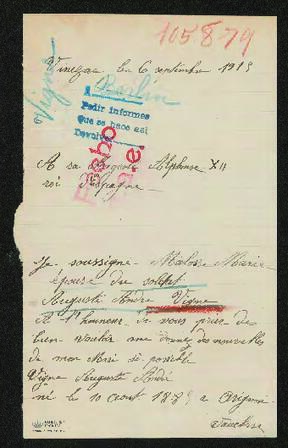 105879
Vigne
Vinezac le 6 septembre 1915
Berlin
Pedir informes
Que se hace así
Devolver
A sa Majesté Alphonse XII
roi d'Espagne
Je soussigné Marie
épouse du soldat
Auguste André Vigne
A l'honneur de vous prier de
bien vouloir me donner des nouvelles
de mon Mari si possible
Vigne Auguste André
né le 10 août 1885 a
Vaucluse